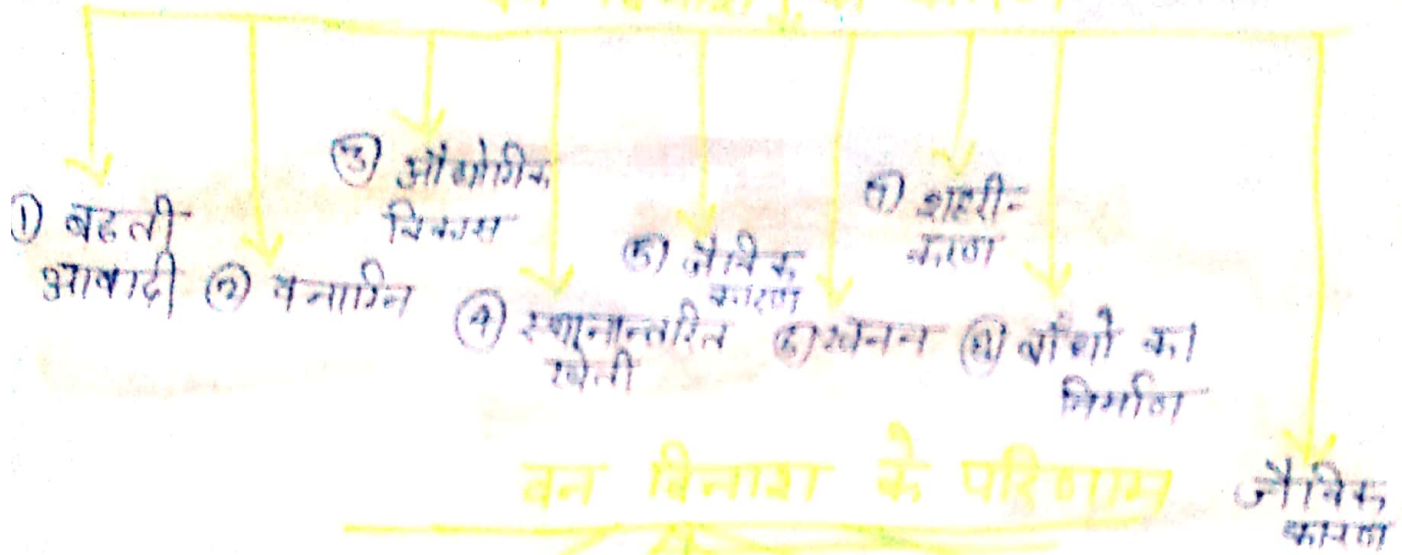 वन विनाश के कारण
① बढती
आबादी
② वनाग्नि
③ औद्योगिक
विकास
④ स्थानान्तरित
खेती
⑤ जैविक
कारण
⑥ खनन
⑦ शहरी-
करण
⑧ बाँधो का
निर्माण
जैविक
कारण
वन विनाश के परिणाम